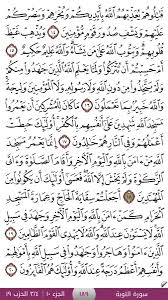 قَٰتِلُوهُمْ يُعَذِّبْهُمُ ٱللَّهُ بِأَيْدِيكُمْ وَيُخْزِهِمْ وَيَنصُرْكُمْ
عَلَيْهِمْ وَيَشْفِ صُدُورَ قَوْمٍ مُّؤْمِنِينَ ١٤ وَيُذْهِبْ غَيْظَ
قُلُوبِهِمْ وَيَتُوبُ ٱللَّهُ عَلَىٰ مَن يَشَآءُ وَٱللَّهُ عَلِيمٌ حَكِيمٌ ١٥
أَمْ حَسِبْتُمْ أَن تُتْرَكُوا۟ وَلَمَّا يَعْلَمِ ٱللَّهُ ٱلَّذِينَ جَٰهَدُوا۟ مِنكُمْ
وَلَمْ يَتَّخِذُوا۟ مِن دُونِ ٱللَّهِ وَلَا رَسُولِهِۦ وَلَا ٱلْمُؤْمِنِينَ
وَلِيجَةً وَٱللَّهُ خَبِيرٌۢ بِمَا تَعْمَلُونَ ١٦ مَا كَانَ لِلْمُشْرِكِينَ أَن يَعْمُرُوا۟
مَسَٰجِدَ ٱللَّهِ شَٰهِدِينَ عَلَىٰٓ أَنفُسِهِم بِٱلْكُفْرِ أُو۟لَٰٓئِكَ حَبِطَتْ
أَعْمَٰلُهُمْ وَفِى ٱلنَّارِ هُمْ خَٰلِدُونَ ١٧ إِنَّمَا يَعْمُرُ مَسَٰجِدَ
ٱللَّهِ مَنْ ءَامَنَ بِٱللَّهِ وَٱلْيَوْمِ ٱلْءَاخِرِ وَأَقَامَ ٱلصَّلَوٰةَ وَءَاتَى
ٱلزَّكَوٰةَ وَلَمْ يَخْشَ إِلَّا ٱللَّهَ فَعَسَىٰٓ أُو۟لَٰٓئِكَ أَن يَكُونُوا۟ مِنَ
ٱلْمُهْتَدِينَ ١٨ أَجَعَلْتُمْ سِقَايَةَ ٱلْحَآجِّ وَعِمَارَةَ ٱلْمَسْجِدِ ٱلْحَرَامِ
كَمَنْ ءَامَنَ بِٱللَّهِ وَٱلْيَوْمِ ٱلْءَاخِرِ وَجَٰهَدَ فِى سَبِيلِ
ٱللَّهِ لَا يَسْتَوُۥنَ عِندَ ٱللَّهِ وَٱللَّهُ لَا يَهْدِى ٱلْقَوْمَ ٱلظَّٰلِمِينَ ١٩
ٱلَّذِينَ ءَامَنُوا۟ وَهَاجَرُوا۟ وَجَٰهَدُوا۟ فِى سَبِيلِ ٱللَّهِ بِأَمْوَٰلِهِمْ
وَأَنفُسِهِمْ أَعْظَمُ دَرَجَةً عِندَ ٱللَّهِ وَأُو۟لَٰٓئِكَ هُمُ ٱلْفَآئِزُونَ ٢٠
سورة التوبة ١٨٩ الجزء ١٠ ٣/٤ الحزب ١٩